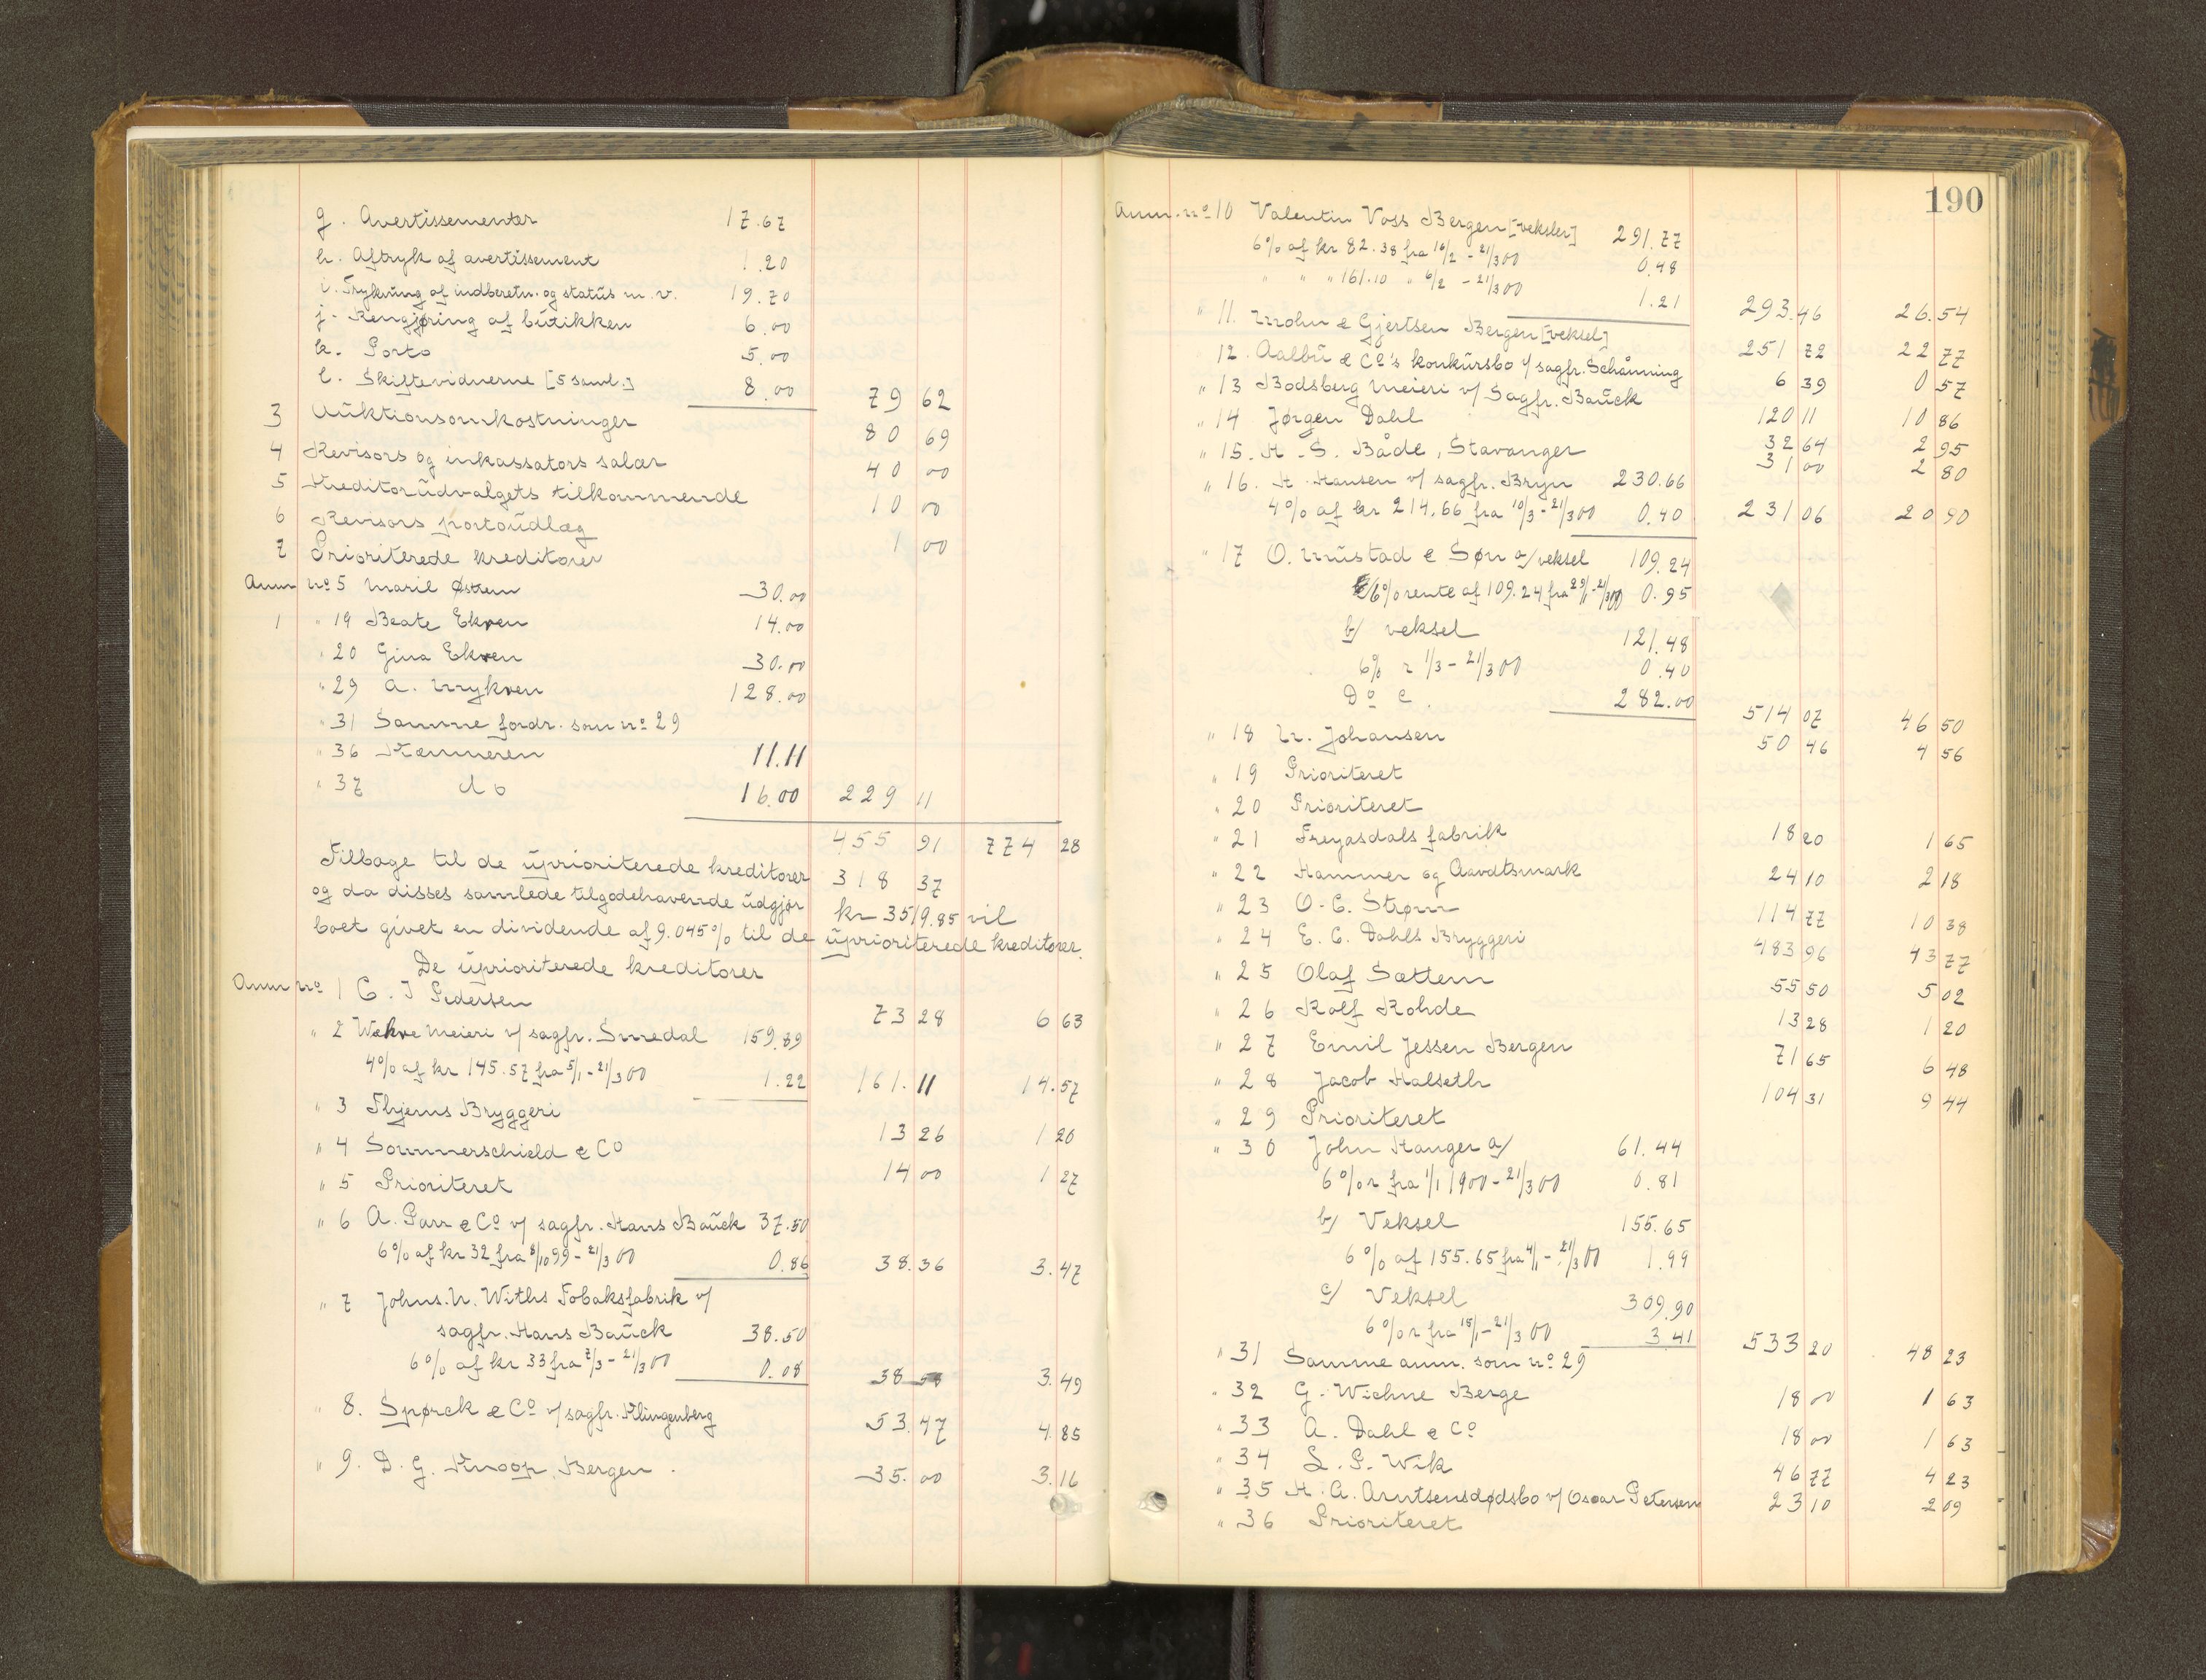 g. Avertissementer 17.67
h. Aftryk af avertissement 1.20
i. Trykning af indberetn. og status m.v. 19.70
j. Rengjøring af butikken 6.00
k. Porto 5.00
l. Skiftevidnerne [5 saml.] 8.00 79 62
3 Auktionsomkostninger 80 69
4 Revisors og inkassators salær 40 00
5 Kreditorudvalgets tilkommende 10 00
6 Revisors portoudlæg 1 00
7 Prioriterede kreditorer
Anm no 5 Maril Østrem 30.00
1 " 19 Beate Ekren 14.00
" 20 Gina Ekren 30.00
" 29 A. Mykven 128.00
" 31 Samme fordr. som no 29
" 36 Kæmneren 11.11
" 37 do 16.00 229 11
455 91 774 28
Tilbage til de uprioriterede kreditorer 318 37
og da disses samlede tilgodehavende udgjør kr 3519.85 vil
boet givet en dividende af 9.045% til de uprioriterede kreditorer.
De uprioriterede kreditorer
Anm no 1 C. J Pedersen 73 28 6 63
" 2 Wækre Meieri v/ sagfr. Smedal 159.89
4% af kr 145.57 fra 5/1 - 21/3 00 1.22 161.11 14.57
" 3 Thjems Bryggeri 13 26 1 20
" 4 Sommerschield & Co 14 00 1 27
" 5 Prioriteret
" 6 A. Parr & Co v/ sagfr. Hans Bauck 37.50
6% af kr 32 fra 8/10 99 - 21/3 00 0.86 38.36 3.47
" 7 Johns. N. Withs Tobaksfabrik v/
sagfr. Hans Bauck 38.50
6% af kr 33 fra 7/3 - 21/3 00 0.08 38 58 3.49
" 8. Spørck & Co v/ sagfr. Klingenberg 53.47 4.85
" 9. D. G. Knoop, Bergen. 35.00 3.16
190
Anm. no 10 Valentin Voss Bergen [veksler] 291.77
6% af kr 82.38 fra 16/2 - 21/3 00 0.48
" " " 161.10 " 6/2 - 21/3 00 1.21 293.46 26.54
" 11. Mohn & Gjertsen Bergen [veksel] 251 72 22 77
12. Aalbu & Co's konkursbo v/ sagfr. Schanning 6 39 0 57
" 13 Bodsberg Meieri v/ Sagfr. Bauck 120 11 10 86
" 14 Jørgen Dahl 32 64 2 95
" 15. H. S. Både, Stavanger 31 00 2 80
" 16. H. Hansen v/ sagfr. Bryn 230.66
4% af kr 214.66 fra 10/3 - 21/3 00 0.40 231 06 20 90
" 17 O. Mustad & Søn a/ veksel 109.24
6% rente af 109.24 fra 29/1 - 21/3 00 0.95
b/ veksel 121.48
6% r 1/3 - 21/3 00 0.40
Do c 282.00 514 07 46 50
" 18 N. Johansen 50 46 4 56
" 19 Prioriteret
" 20 Prioriteret
" 21 Freyasdals fabrik 18 20 1 65
" 22 Hammer og Aavdtsmark 24 10 2 18
" 23 O. C. Strøm 114 77 10 38
" 24 E. C. Dahls Bryggeri 483 96 43 77
" 25 Olaf Sættem 55 50 5 02
" 26 Rolf Rohde 13 28 1 20
" 27 Emil Jessen Bergen 71 65 6 48
" 28 Jacob Halseth 104 31 9 44
" 29 Prioriteret
" 30 John Hanger a/ 61.44
6% r fra 1/1 1900 - 21/3 00 0.81
b/ Veksel 155.65
6% af 155.65 fra 4/1 - 21/3 00 1.99
c/ Veksel 309.90
6% r fra 15/1 - 21/3 00 3.41 533 20 48 23
" 31 Samme anm. som no 29
" 32 G. Wichne Berge 18 00 1 63
" 33 A. Dahl & Co 18 00 1 63
" 34 L. P. Wik 46 77 4 23
" 35 H. A. Arntsens dødsbo v/ Oscar Petersen 23 10 2 09
" 36 Prioriteret